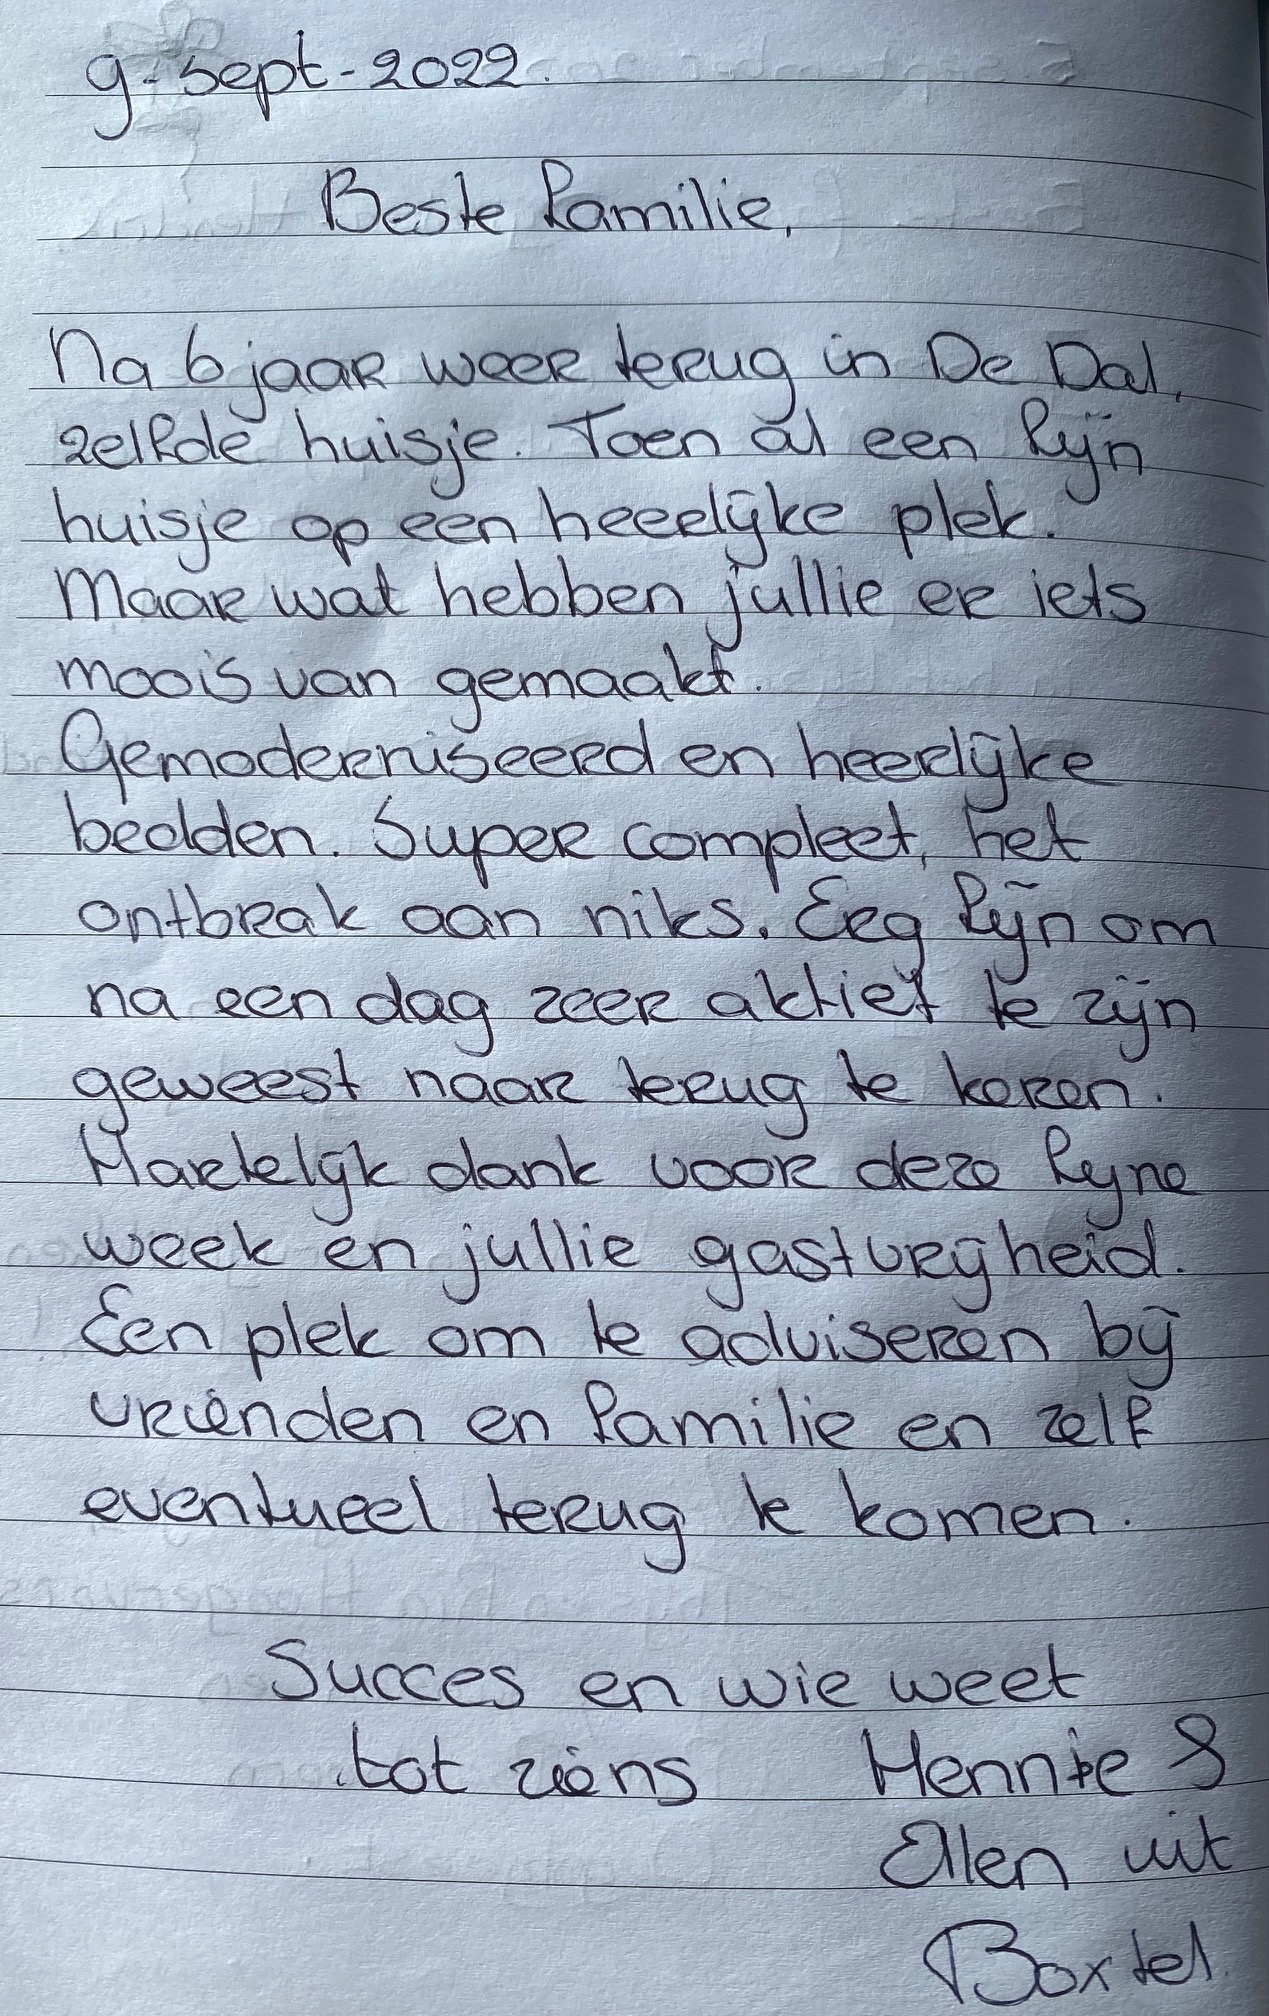 9-sept-2022.
Beste familie,
Na 6 jaar weer terug in De Dal,
zelfde huisje. Toen al een fijn
huisje op een heerlijke plek.
Maar wat hebben jullie er iets
moois van gemaakt.
Gemoderniseerd en heerlijke
bedden. Super compleet, het
ontbrak aan niks. Erg fijn om
na een dag zeer aktief te zijn
geweest naar terug te keren.
Hartelijk dank voor deze fijne
week en jullie gastvrijheid.
Een plek om te adviseren bij
vrienden en familie en zelf
eventueel terug te komen.
Succes en wie weet
tot ziens Hennie &
Ellen uit
Boxtel.